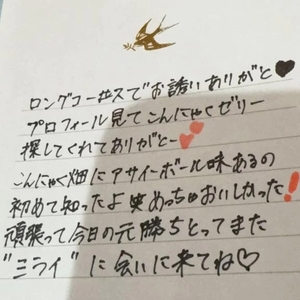 ロングコースでお誘いありがと♥
プロフィール見てこんにゃくゼリー
探してくれてありがとー💕
こんにゃく畑にアサイーボール味あるの
初めて知ったよ笑めっちゃおいしかった!
頑張って今日の元勝ちとってまた
"ミライ"に会いに来てね♡